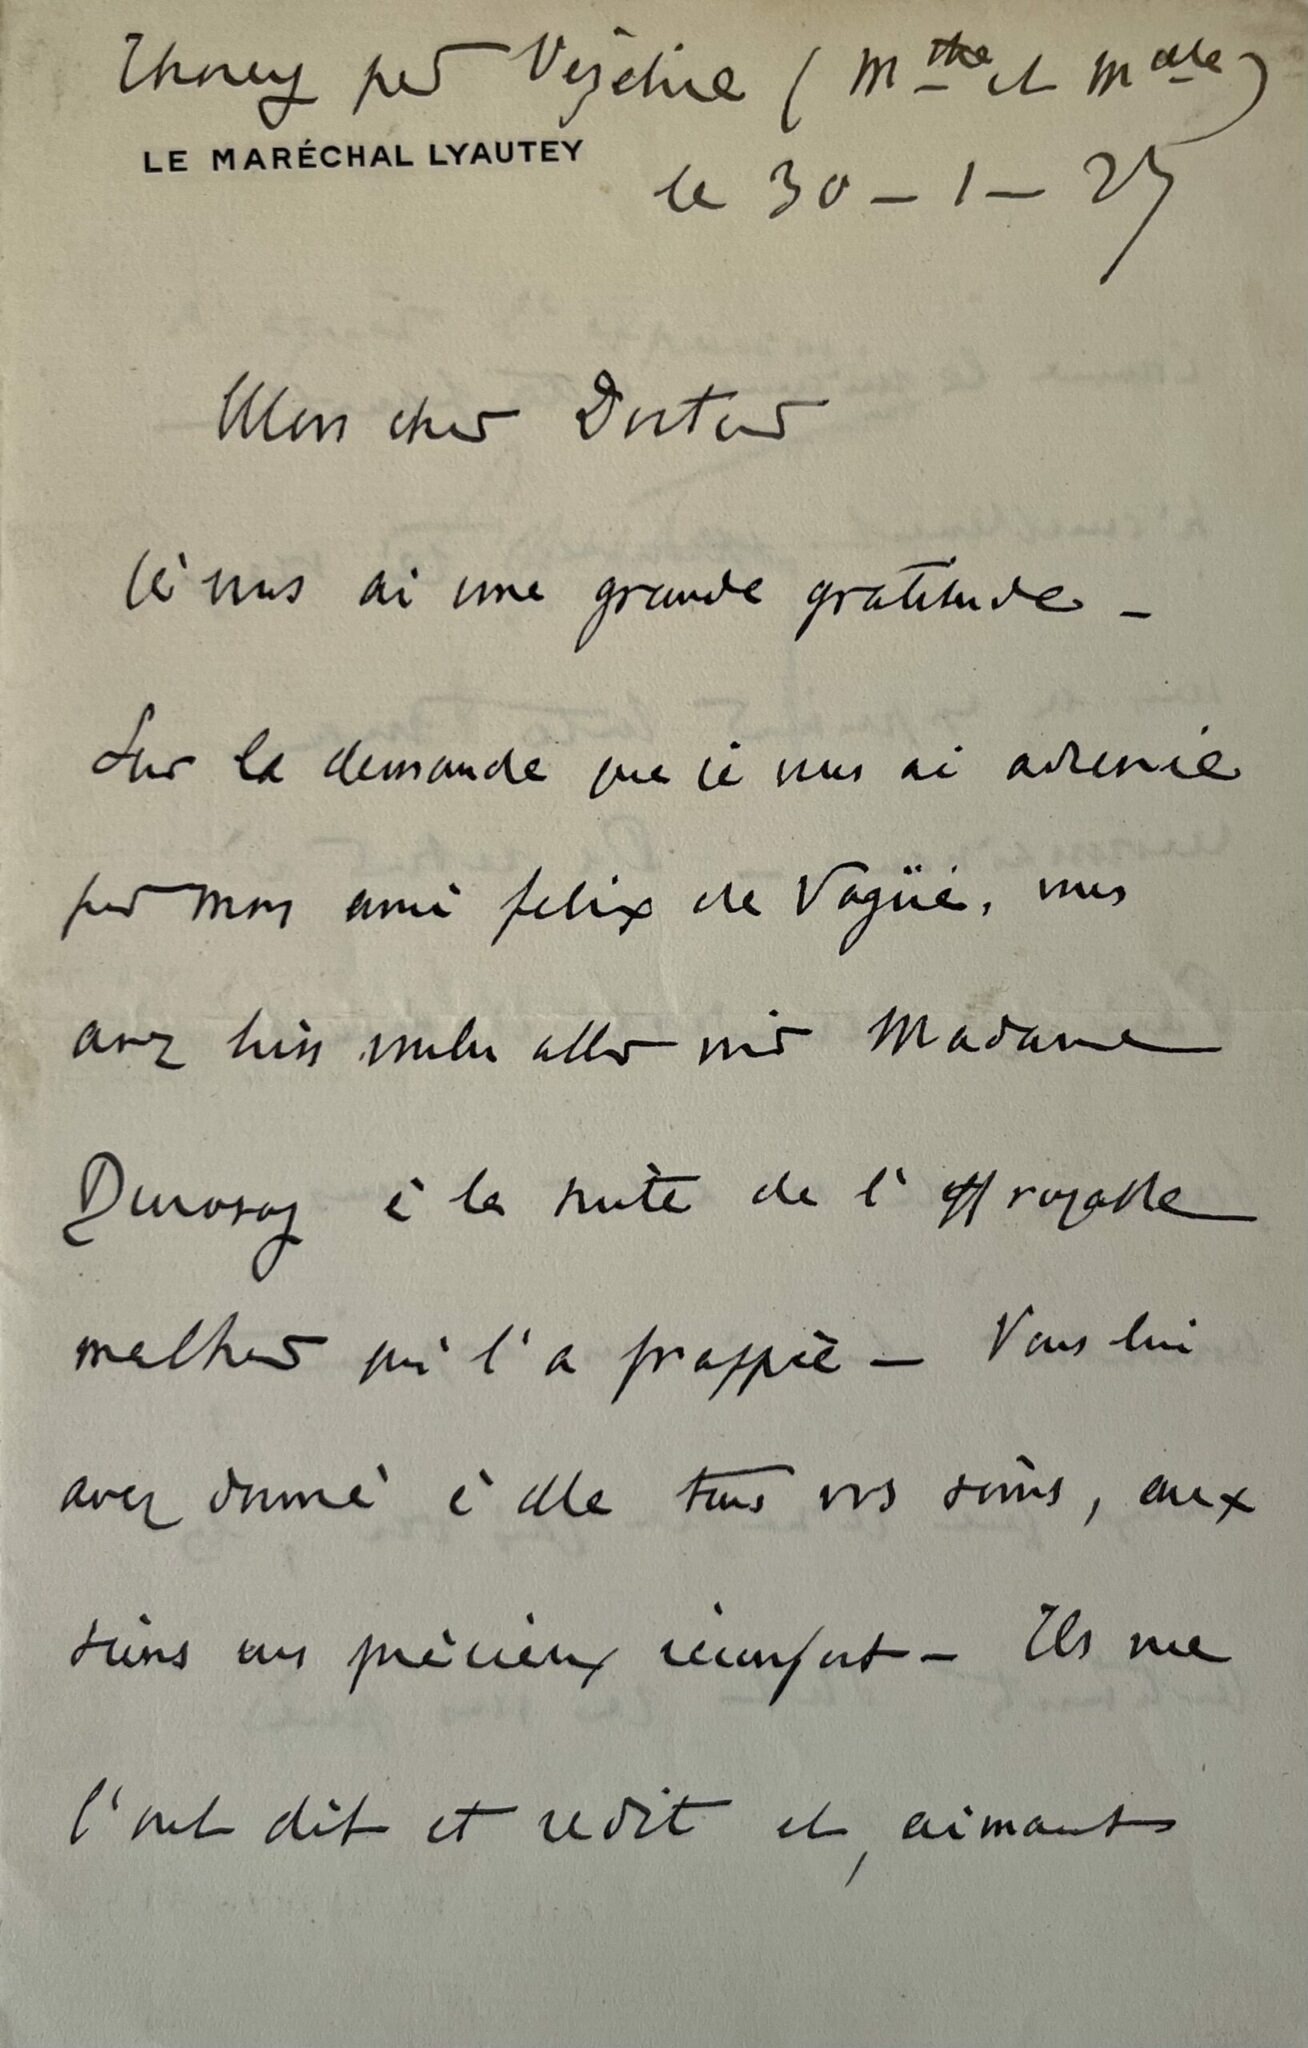 Thorey par Vézelise (Mthe et Mlle)
LE MARÉCHAL LYAUTEY
le 30-1-25
Mon cher Docteur
Je vous ai une grande gratitude –
Sur la demande que je vous ai adressée
par mon ami Felix de Vogüé, vous
avez bien voulu aller voir Madame
Durosoy à la suite de l'effroyable
malheur qui l'a frappée – Vous lui
avez donné à elle tous vos soins, aux
siens un précieux réconfort – Ils me
l'ont dit et redit et, aimant